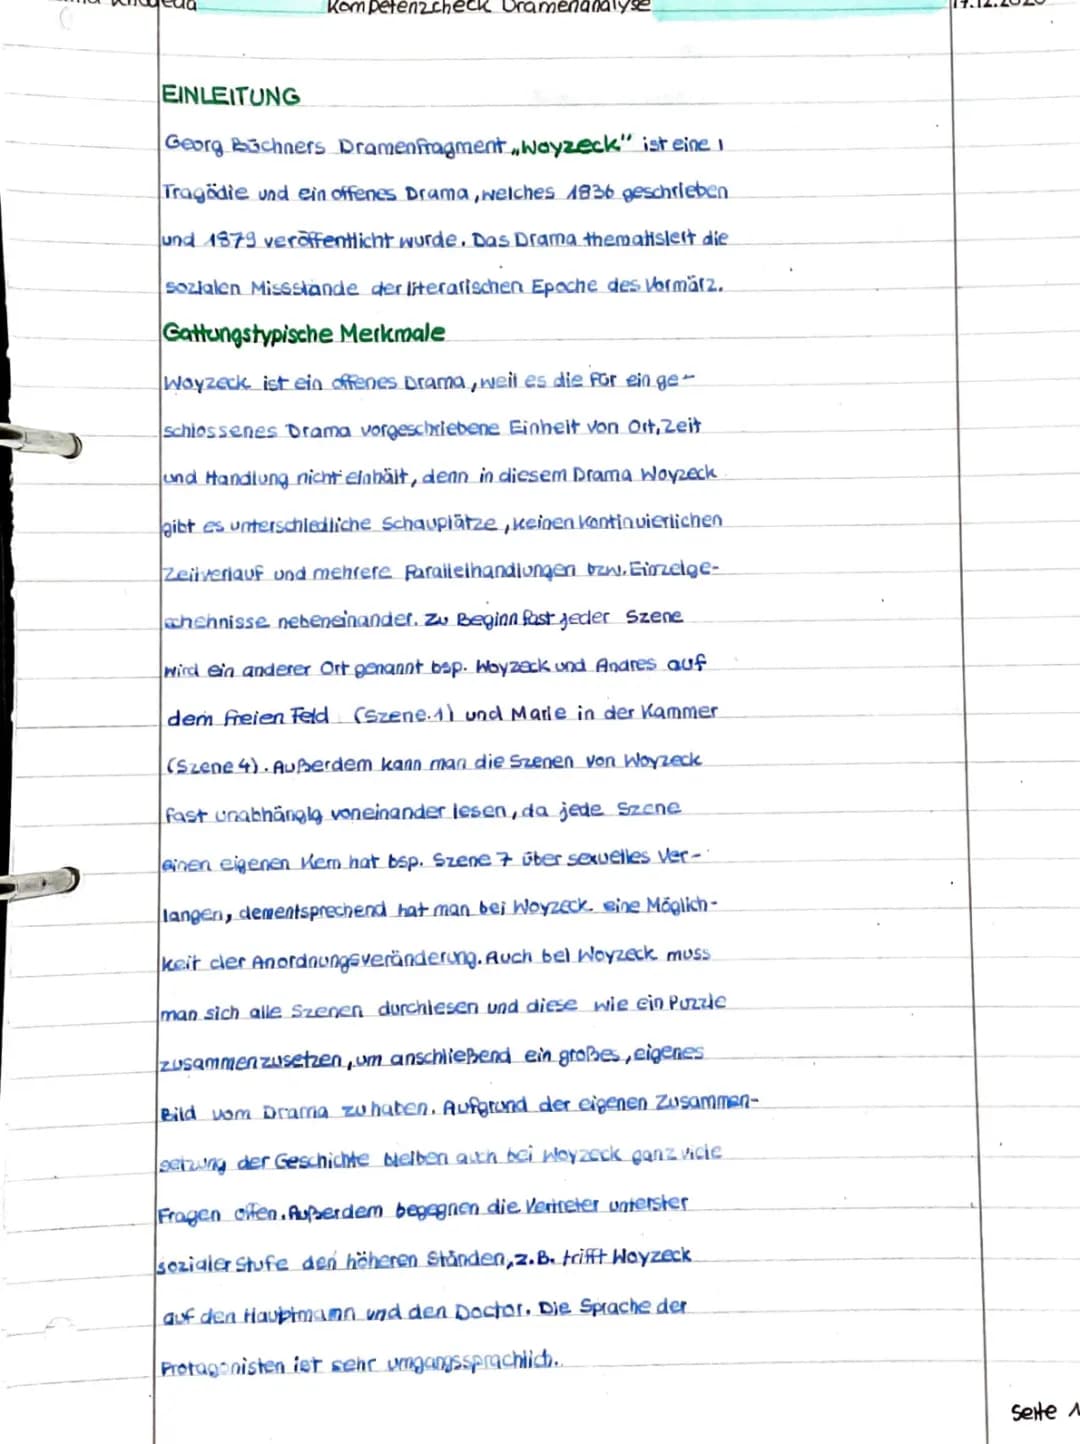 Kompetenzcheck Dramenanalyse
EINLEITUNG
Georg Büchners Dramenfragment „Woyzeck" ist eine
Tragödie und ein offenes Drama, welches 1836 geschrieben
und 1879 veröffentlicht wurde. Das Drama thematisiert die
sozialen Missstände der literarischen Epoche des Vormärz.
Gattungstypische Merkmale
Woyzeck ist ein offenes Drama, weil es die für ein ge-
schlossenes Drama vorgeschriebene Einheit von Ort, Zeit
und Handlung nicht einhält, denn in diesem Drama Woyzeck
gibt es unterschiedliche Schauplätze, keinen kontinuierlichen
Zeitverlauf und mehrere Parallelhandlungen bzw. Einzelge-
schehnisse nebeneinander. Zu Beginn fast jeder Szene
wird ein anderer Ort genannt bsp. Woyzeck und Andres auf
dem freien Feld (Szene.1) und Marie in der Kammer
(Szene 4). Außerdem kann man die Szenen von Woyzeck
fast unabhängig voneinander lesen, da jede Szene
einen eigenen Kern hat bsp. Szene 7 über sexuelles Ver-
langen, dementsprechend hat man bei Woyzeck eine Möglich-
keit der Anordnungsveränderung. Auch bei Woyzeck muss
man sich alle Szenen durchlesen und diese wie ein Puzzle
zusammenzusetzen, um anschließend ein großes, eigenes
Bild vom Drama zu haben. Aufgrund der eigenen Zusammen-
setzung der Geschichte bleiben auch bei Woyzeck ganz viele
Fragen offen. Außerdem begegnen die Vertreter unterster
sozialer Stufe den höheren Ständen, z.B. trifft Woyzeck
auf den Hauptmann und den Doctor. Die Sprache der
Protagonisten ist sehr umgangssprachlich.
Seite 1